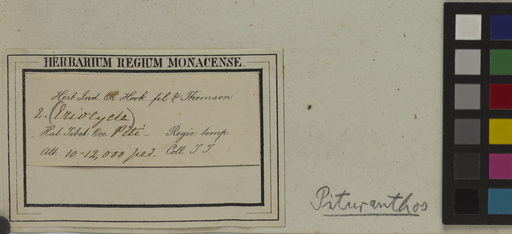 HERBARIUM REGIUM MONACENSE.
Herb. Ind. Or. Hook. fil & Thomson
2. (Eriocycla)
Hab. Tibet Occ. Piti – Regio temp
Alt. 10-12,000 ped. Coll. T T
Pituranthos